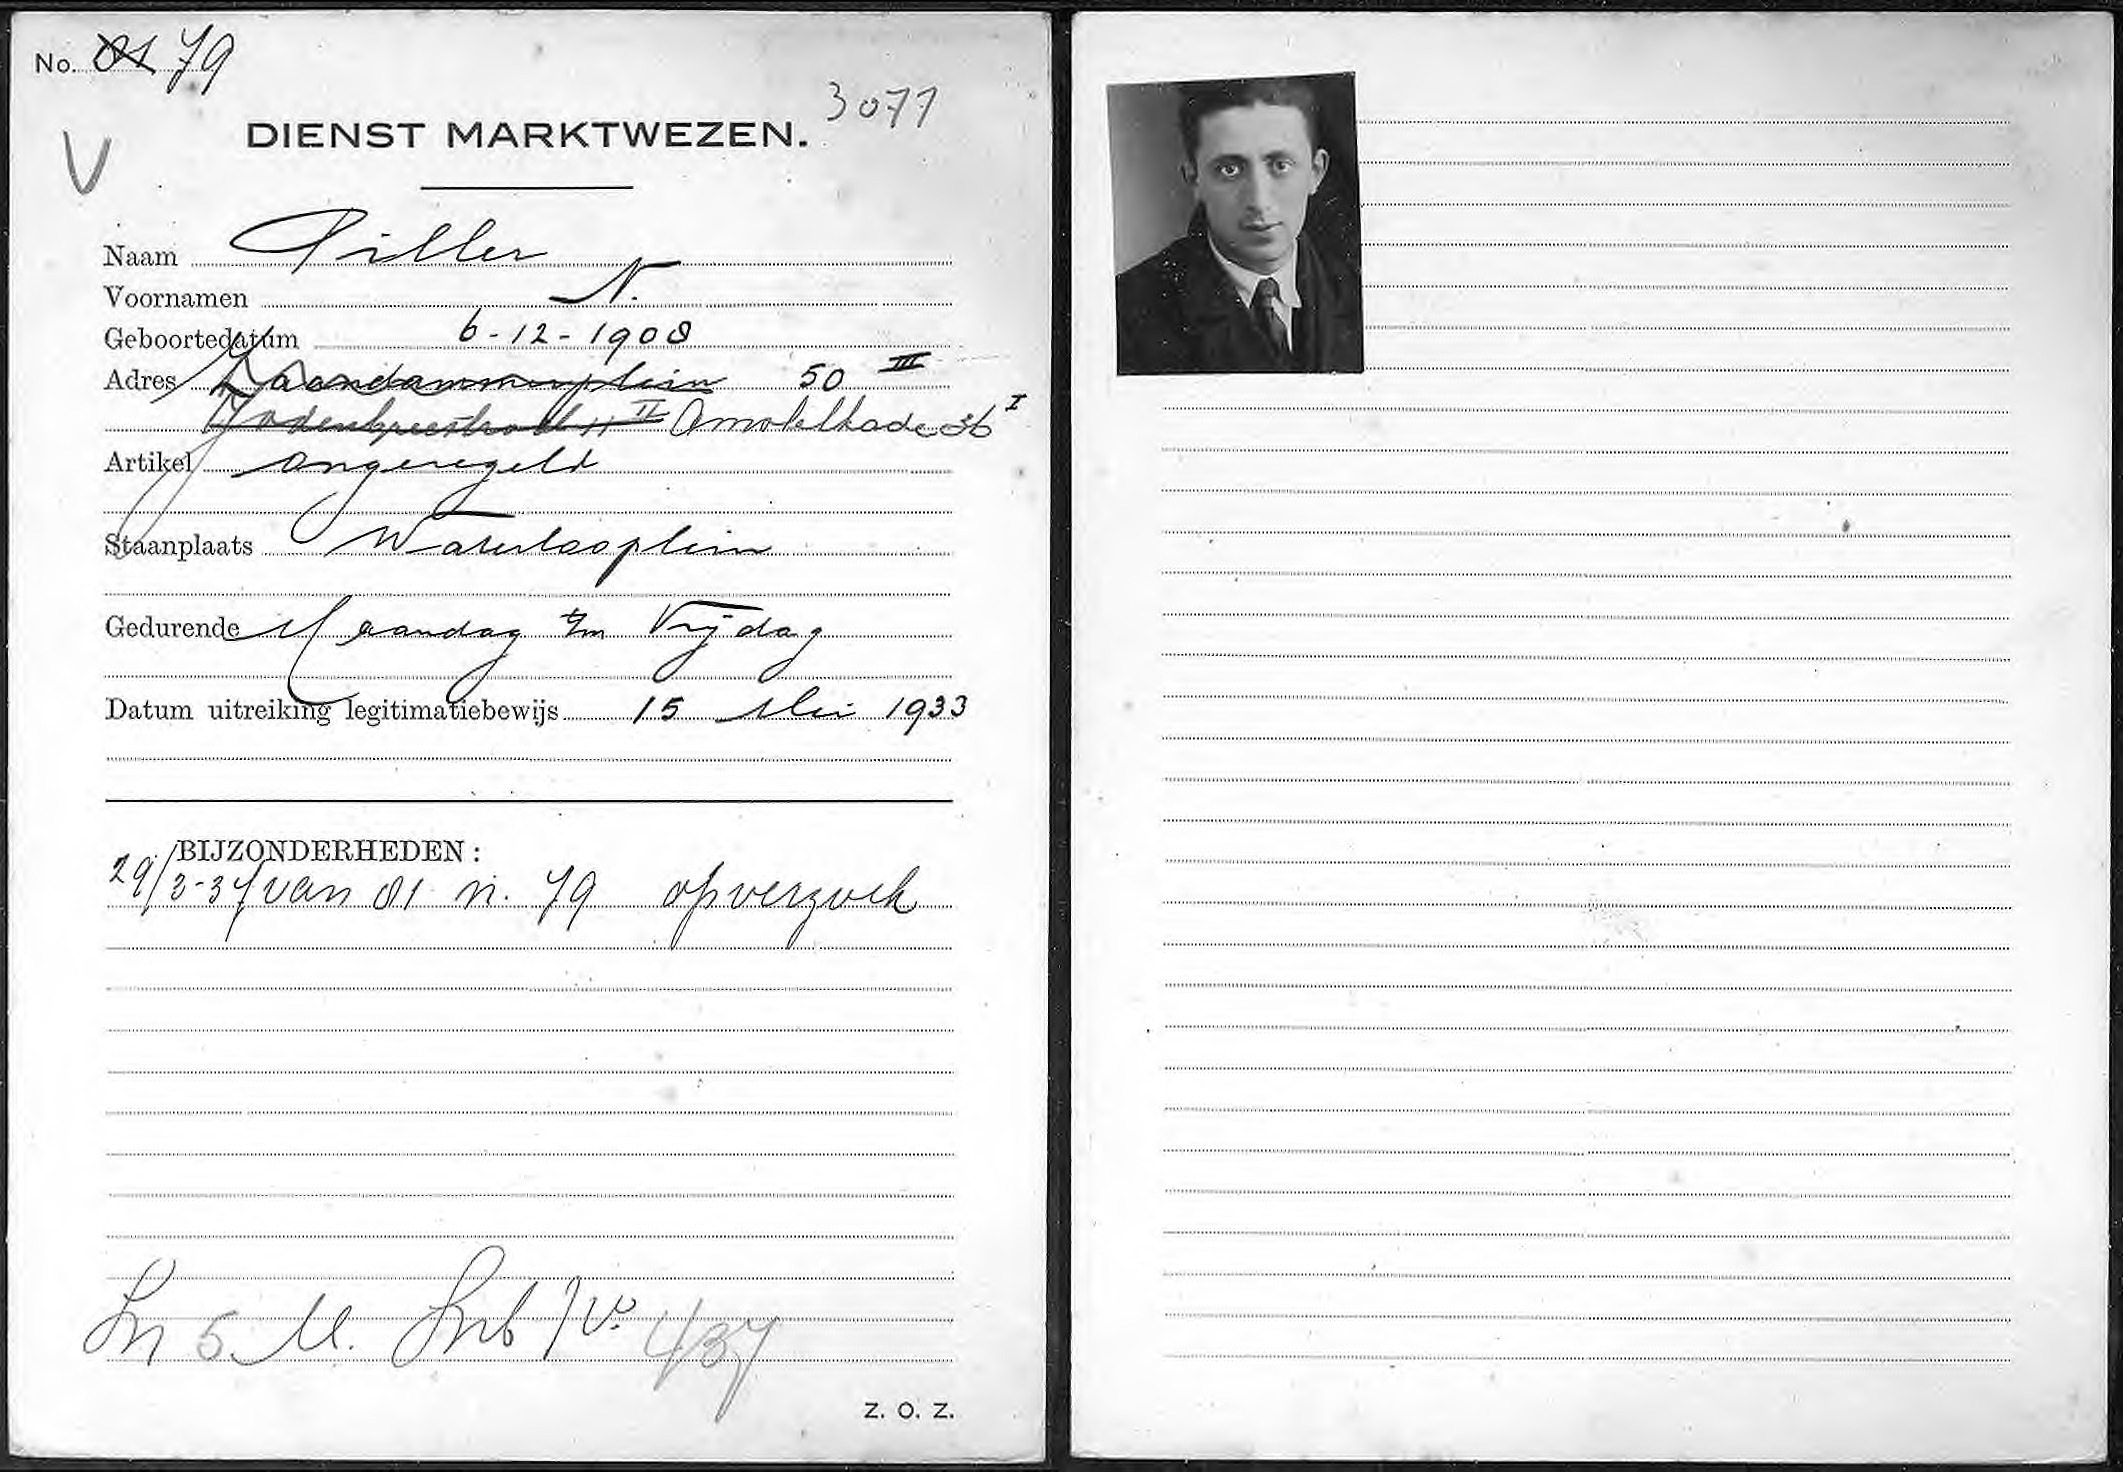 No. 81 79
3077
V
DIENST MARKTWEZEN.
Naam Piller
Voornamen N.
Geboortedatum 6-12-1908
Adres Zaandammerplein 50 III
Jodenbreestraat 11 II Amstelkade 36 I
Artikel ongeregeld
Staanplaats Waterlooplein
Gedurende Maandag t/m Vrijdag
Datum uitreiking legitimatiebewijs 15 Mei 1933
BIJZONDERHEDEN:
29/3-37 van 81 n. 79 op verzoek
5 M. 4/37
Z. O. Z.